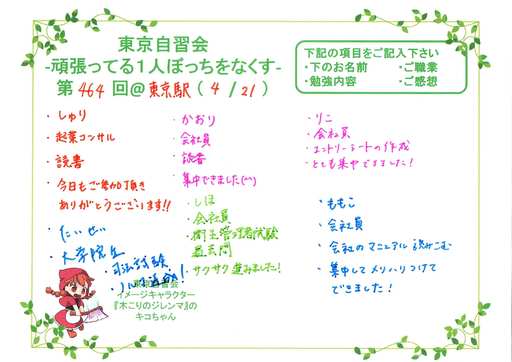 東京自習会
-頑張ってる1人ぼっちをなくす-
第 464 回@東京駅(4/21)
下記の項目をご記入下さい
・下のお名前 ・ご職業
・勉強内容 ・ご感想
・しゅり
・起業コンサル
・読書
・今日もご参加頂き
ありがとうございます!!
・かおり
会社員
読書
集中できました(^^)
・りこ
・会社員
・エントリーシートの作成
・とても集中できました!
・しほ
・会社員
・衛生管理者試験
過去問
・サクサク進みました!
・たいせい
・大学院生
・司法試験
・ももこ
・会社員
・会社のマニュアル読みこむ
・集中してメリハリつけて
できました!
東京自習会
イメージキャラクター
『木こりのジレンマ』の
キコちゃん